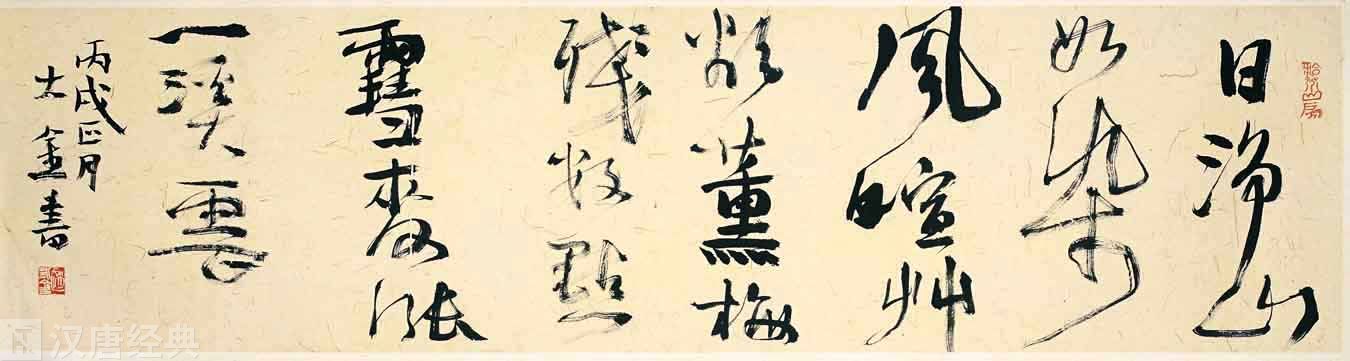 日淨山
如染
風暄艸
欲薰梅
殘数點
雪麥漲
一溪雲
丙戌正月
金書
汉唐经典